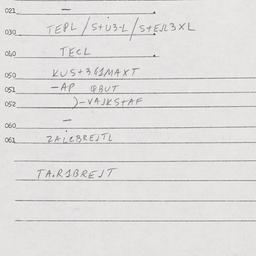 021 —
030 TEPL / S+U3-L / S+EJL3XL
040 TECL
050 KUS+3G1MAXT
051 -AP QBUT
052 )-VAJKS+AF
060 —
061 ZAICBREJTL
TA.R1BREJT